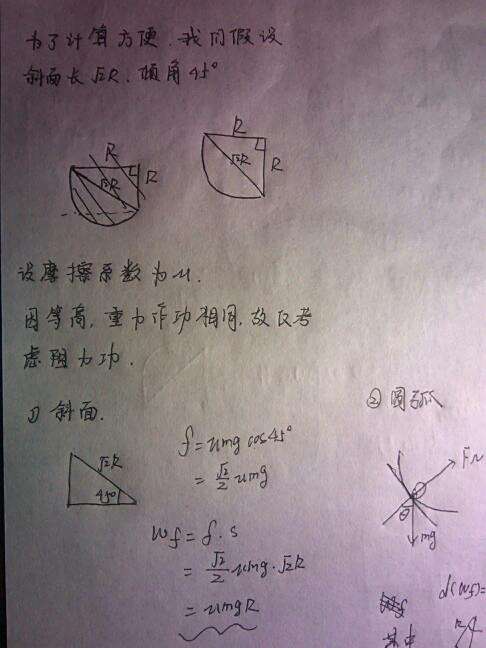 为了计算方便,我们假设
斜面长√2R,倾角45°
R
√2R
R
R
√2R
R
设摩擦系数为u.
因等高,重力作功相同,故只考
虑阻力功.
1) 斜面.
√2R
45°
f=umg cos45°
= √2/2 umg
Wf = f·s
= √2/2 umg·√2R
= umgR
② 圆弧
FN
θ
mg
d(Wf)=
其中